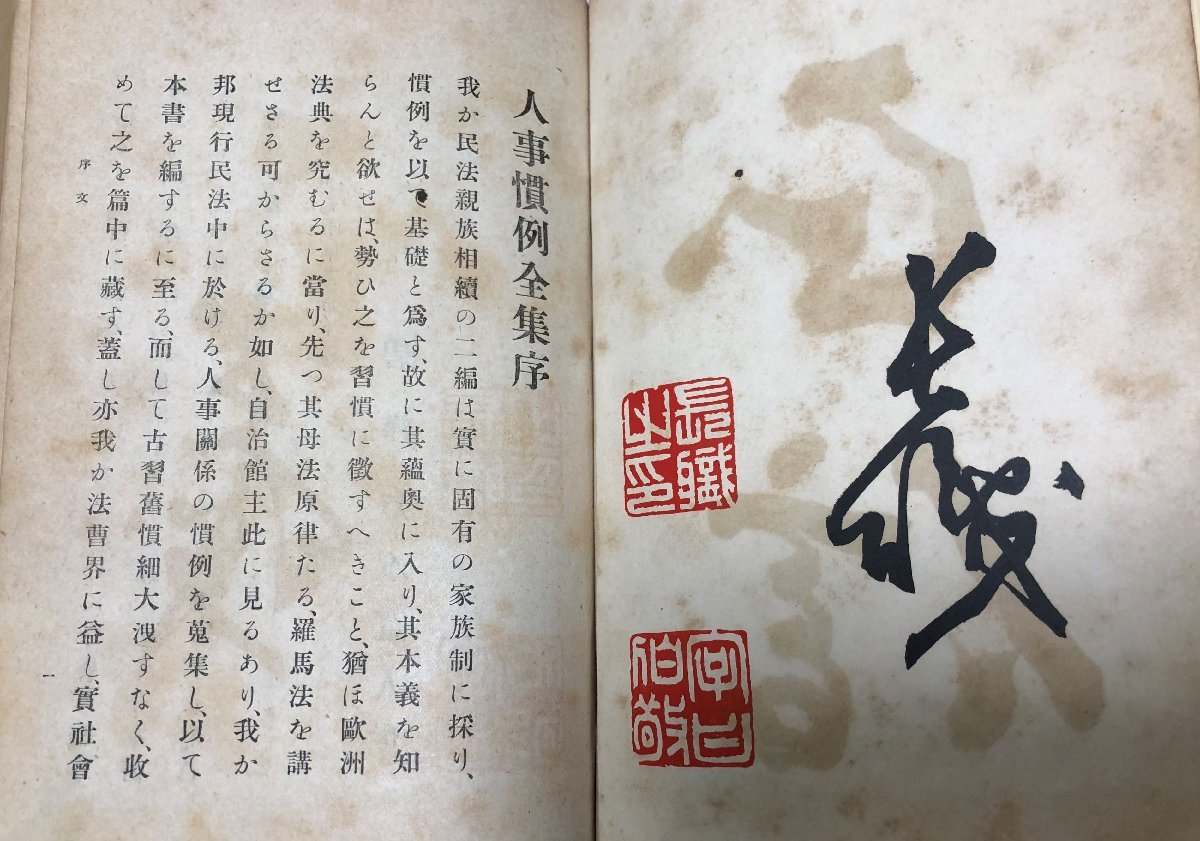 長職
長職
之印
字曰
伯敬
人事慣例全集序
我か民法親族相續の二編は實に固有の家族制に採り、
慣例を以て基礎と爲す、故に其蘊奥に入り、其本義を知
らんと欲せは、勢ひ之を習慣に徵すへきこと、猶ほ歐洲
法典を究むるに當り、先つ其母法原律たる、羅馬法を講
せさる可からさるか如し、自治館主此に見るあり、我か
邦現行民法中に於ける、人事關係の慣例を蒐集し、以て
本書を編するに至る、而して古習舊慣細大洩すなく、收
めて之を篇中に藏す、蓋し亦我か法曹界に益し、實社會
序文
一